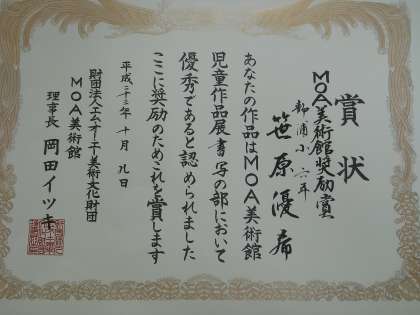 賞状
MOA美術館奨励賞
勢浦小六年
笹原優希
あなたの作品はMOA美術館
児童作品展書写の部において
優秀であると認められました
ここに奨励のためこれを賞します
平成二十二年十月九日
財団法人エムオーエー美術文化財団
MOA美術館
理事長 岡田イツキ